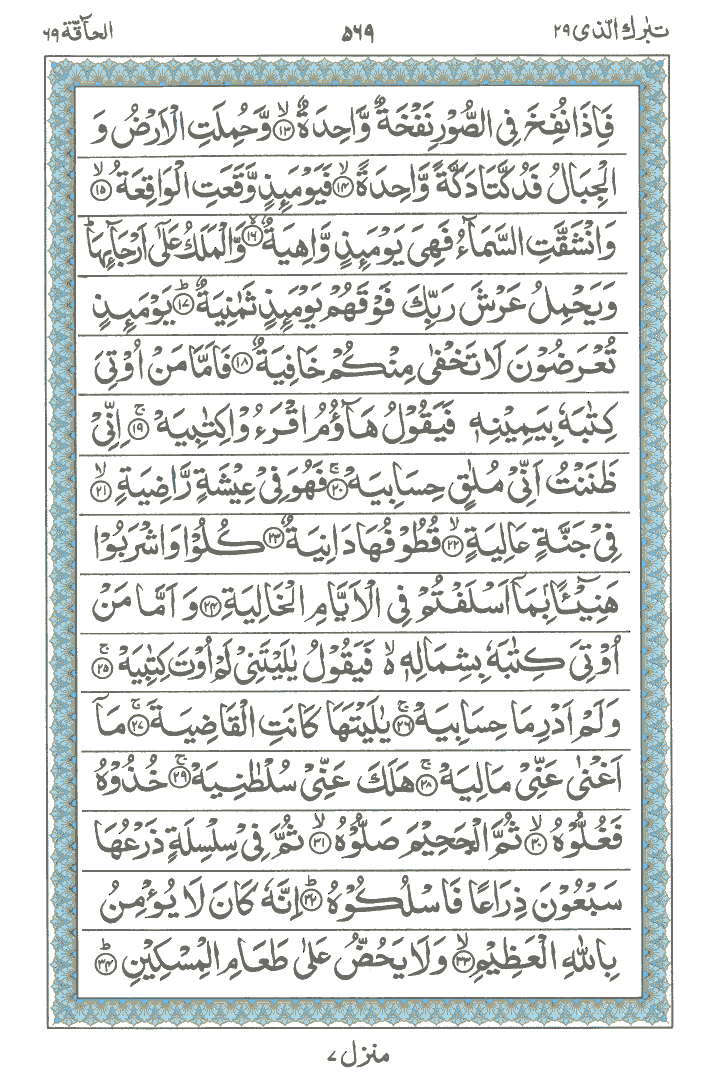 تبٰرك الّذى ٢٩ ٥٦٩ الحآقّة ٦٩
فَاِذَا نُفِخَ فِى الصُّوْرِ نَفْخَةٌ وَّاحِدَةٌ ۙ‏﴿۱۳﴾ وَّحُمِلَتِ الْاَرْضُ وَ
الْجِبَالُ فَدُكَّتَا دَكَّةً وَّاحِدَةً ۙ‏﴿۱۴﴾ فَيَوْمَئِذٍ وَّقَعَتِ الْوَاقِعَةُ ۙ‏﴿۱۵﴾
وَانْشَقَّتِ السَّمَآءُ فَهِىَ يَوْمَئِذٍ وَّاهِيَةٌ ۙ‏﴿۱۶﴾ وَّالْمَلَكُ عَلٰٓى اَرْجَآئِهَا ؕ
وَيَحْمِلُ عَرْشَ رَبِّكَ فَوْقَهُمْ يَوْمَئِذٍ ثَمٰنِيَةٌ ؕ‏﴿۱۷﴾ يَوْمَئِذٍ
تُعْرَضُوْنَ لَا تَخْفٰى مِنْكُمْ خَافِيَةٌ ‏﴿۱۸﴾ فَاَمَّا مَنْ اُوْتِىَ
كِتٰبَهٗ بِيَمِيْنِهٖ فَيَقُوْلُ هَآؤُمُ اقْرَءُوْا كِتٰبِيَهْ ۚ‏﴿۱۹﴾ اِنِّىْ
ظَنَنْتُ اَنِّىْ مُلٰقٍ حِسَابِيَهْ ۚ‏﴿۲۰﴾ فَهُوَ فِىْ عِيْشَةٍ رَّاضِيَةٍ ۙ‏﴿۲۱﴾
فِىْ جَنَّةٍ عَالِيَةٍ ۙ‏﴿۲۲﴾ قُطُوْفُهَا دَانِيَةٌ ‏﴿۲۳﴾ كُلُوْا وَاشْرَبُوْا
هَنِيْٓـئًا ۢ بِمَآ اَسْلَفْتُمْ فِى الْاَيَّامِ الْخَالِيَةِ ‏﴿۲۴﴾ وَاَمَّا مَنْ
اُوْتِىَ كِتٰبَهٗ بِشِمَالِهٖ ۙ۬ فَيَقُوْلُ يٰلَيْتَنِىْ لَمْ اُوْتَ كِتٰبِيَهْ ۚ‏﴿۲۵﴾
وَلَمْ اَدْرِ مَا حِسَابِيَهْ ۚ‏﴿۲۶﴾ يٰلَيْتَهَا كَانَتِ الْقَاضِيَةَ ۚ‏﴿۲۷﴾ مَآ
اَغْنٰى عَنِّىْ مَالِيَهْ ۚ‏﴿۲۸﴾ هَلَكَ عَنِّىْ سُلْطٰنِيَهْ ۚ‏﴿۲۹﴾ خُذُوْهُ
فَغُلُّوْهُ ۙ‏﴿۳۰﴾ ثُمَّ الْجَحِيْمَ صَلُّوْهُ ۙ‏﴿۳۱﴾ ثُمَّ فِىْ سِلْسِلَةٍ ذَرْعُهَا
سَبْعُوْنَ ذِرَاعًا فَاسْلُكُوْهُ ؕ‏﴿۳۲﴾ اِنَّهٗ كَانَ لَا يُؤْمِنُ
بِاللّٰهِ الْعَظِيْمِ ۙ‏﴿۳۳﴾ وَلَا يَحُضُّ عَلٰى طَعَامِ الْمِسْكِيْنِ ؕ‏﴿۳۴﴾
منزل ٧